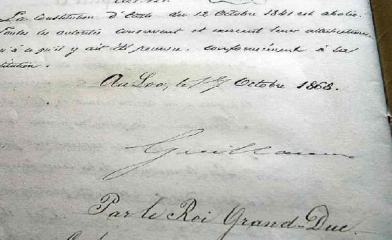 La Constitution d'États du 12 Octobre 1841 est abolie.
toutes les autorités conservent et exercent leurs attributions
à ce qu'il y ait été pourvu, conformément à la
titution.
Au Loo, le 17 Octobre 1868.
Guillaume
Par le Roi Grand-Duc.